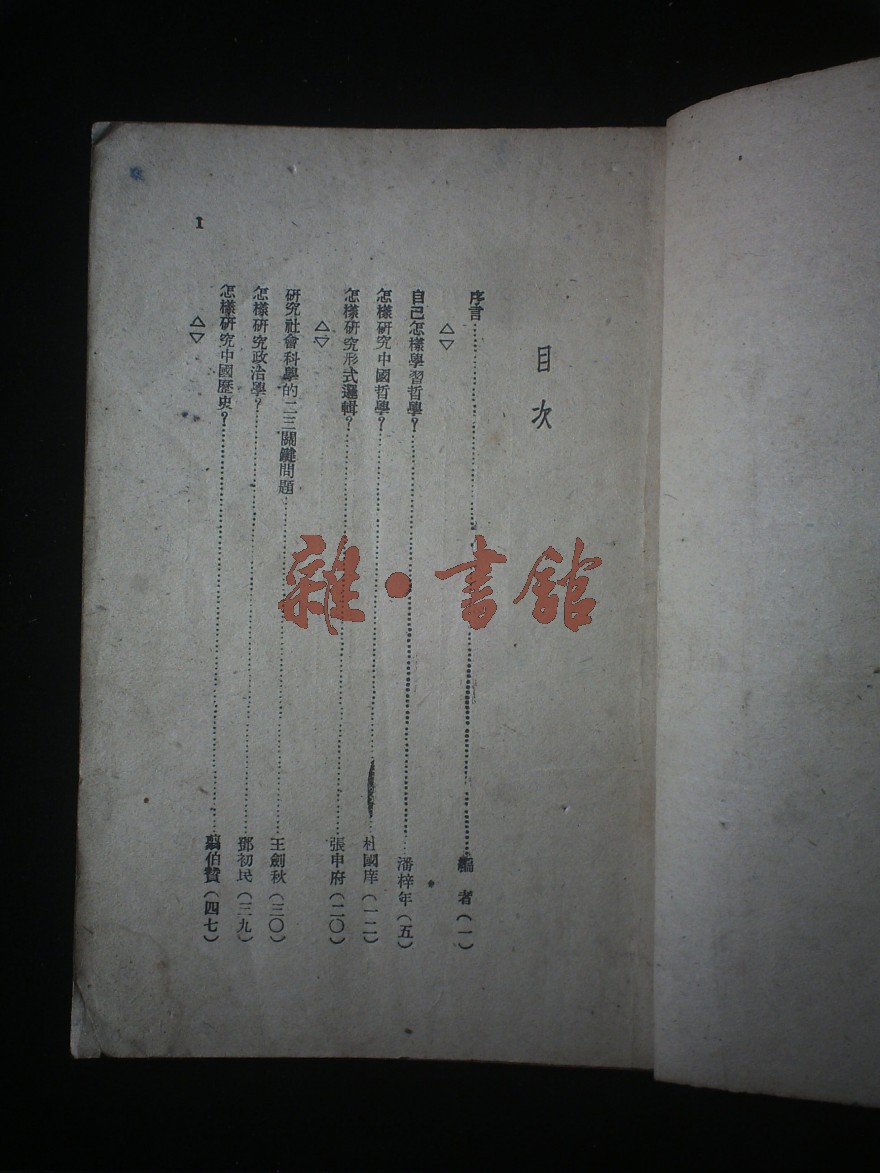 目次
序言……編者(一)
△▽
自己怎樣學習哲學?……潘梓年(五)
怎樣研究中國哲學?……杜國庠(一二)
怎樣研究形式邏輯?……張申府(二〇)
△▽
研究社會科學的二三關鍵問題……王劍秋(三〇)
怎樣研究政治學?……鄧初民(三九)
怎樣研究中國歷史?……翦伯贊(四七)
△▽
1
雜·書館